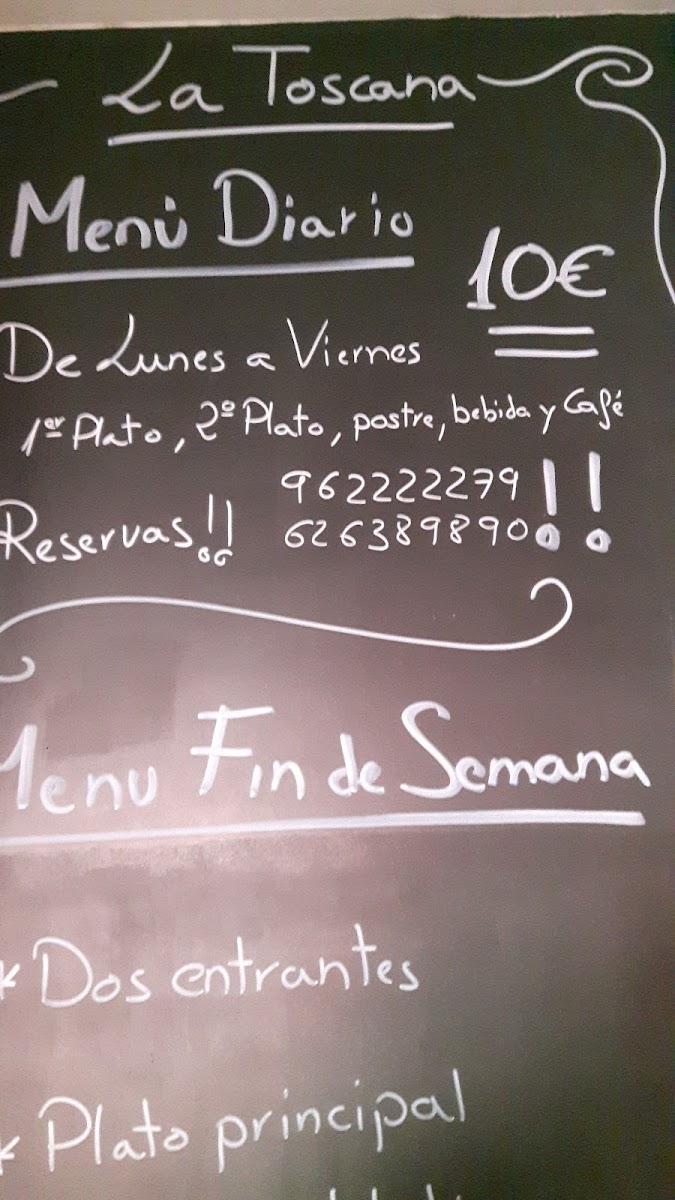 La Toscana
Menú Diario
10€
De Lunes a Viernes
1er Plato, 2º Plato, postre, bebida y Café
Reservas!! 962222279 !!
626389890
Menu Fin de Semana
* Dos entrantes
* Plato principal